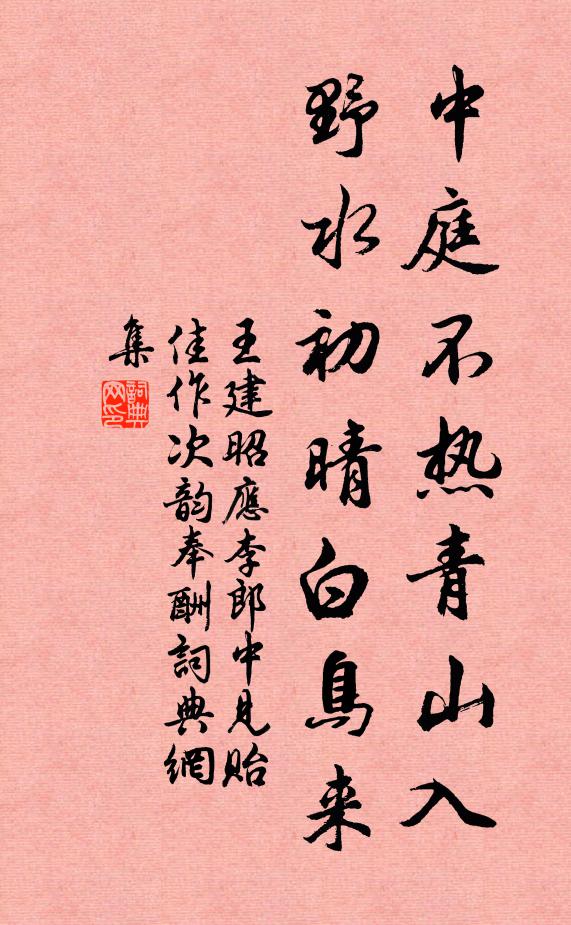 中庭不热青山入
野水初晴白鳥来
王建昭應李郎中見貽
佳作次韵奉酬詞典網
集
詞典
网印